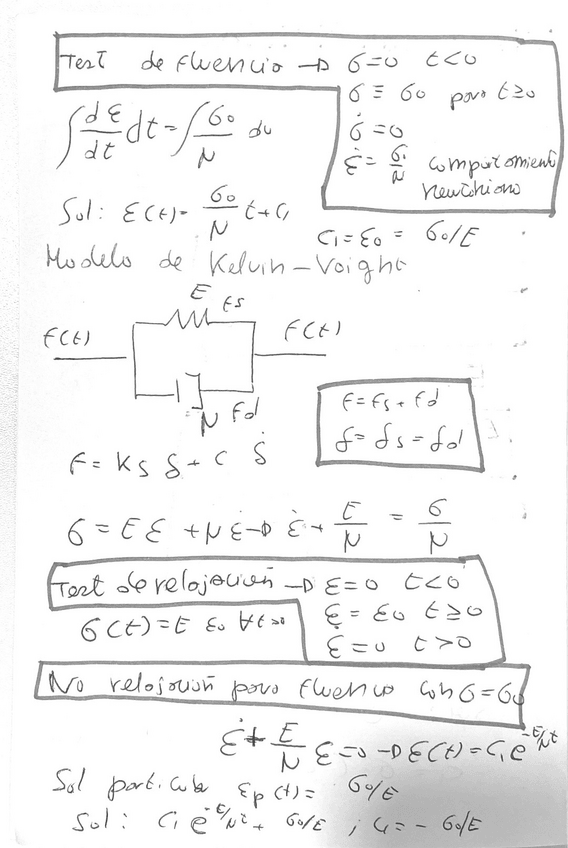 Test de fluencia → σ=0 t<0
σ = σ0 para t≥0
σ̇ = 0
ε̇ = σ/N comportamiento
newtoniano
∫ dε/dt dt = ∫ σ0/N
Sol: ε(t) = σ0/N t + C1
C1 = ε0 = σ0/E
Modelo de Kelvin-Voight
E
fs
F(t)
F(t)
N Fd
F = fs + fd
δ = δs = δd
F = Ks δ + C δ̇
σ = E ε + N ε̇ → ε̇ + E/N = σ/N
Test de relajación → ε=0 t<0
ε = ε0 t≥0
ε̇ = 0 t>0
σ(t) = E ε0 ∀t>0
No relajación para fluencia con σ=σ0
ε̇ + E/N ε = 0 → ε(t) = C1 e^-E/N t
Sol particular εp(t) = σ0/E
Sol: C1 e^-E/N t + σ0/E ; C1 = - σ0/E